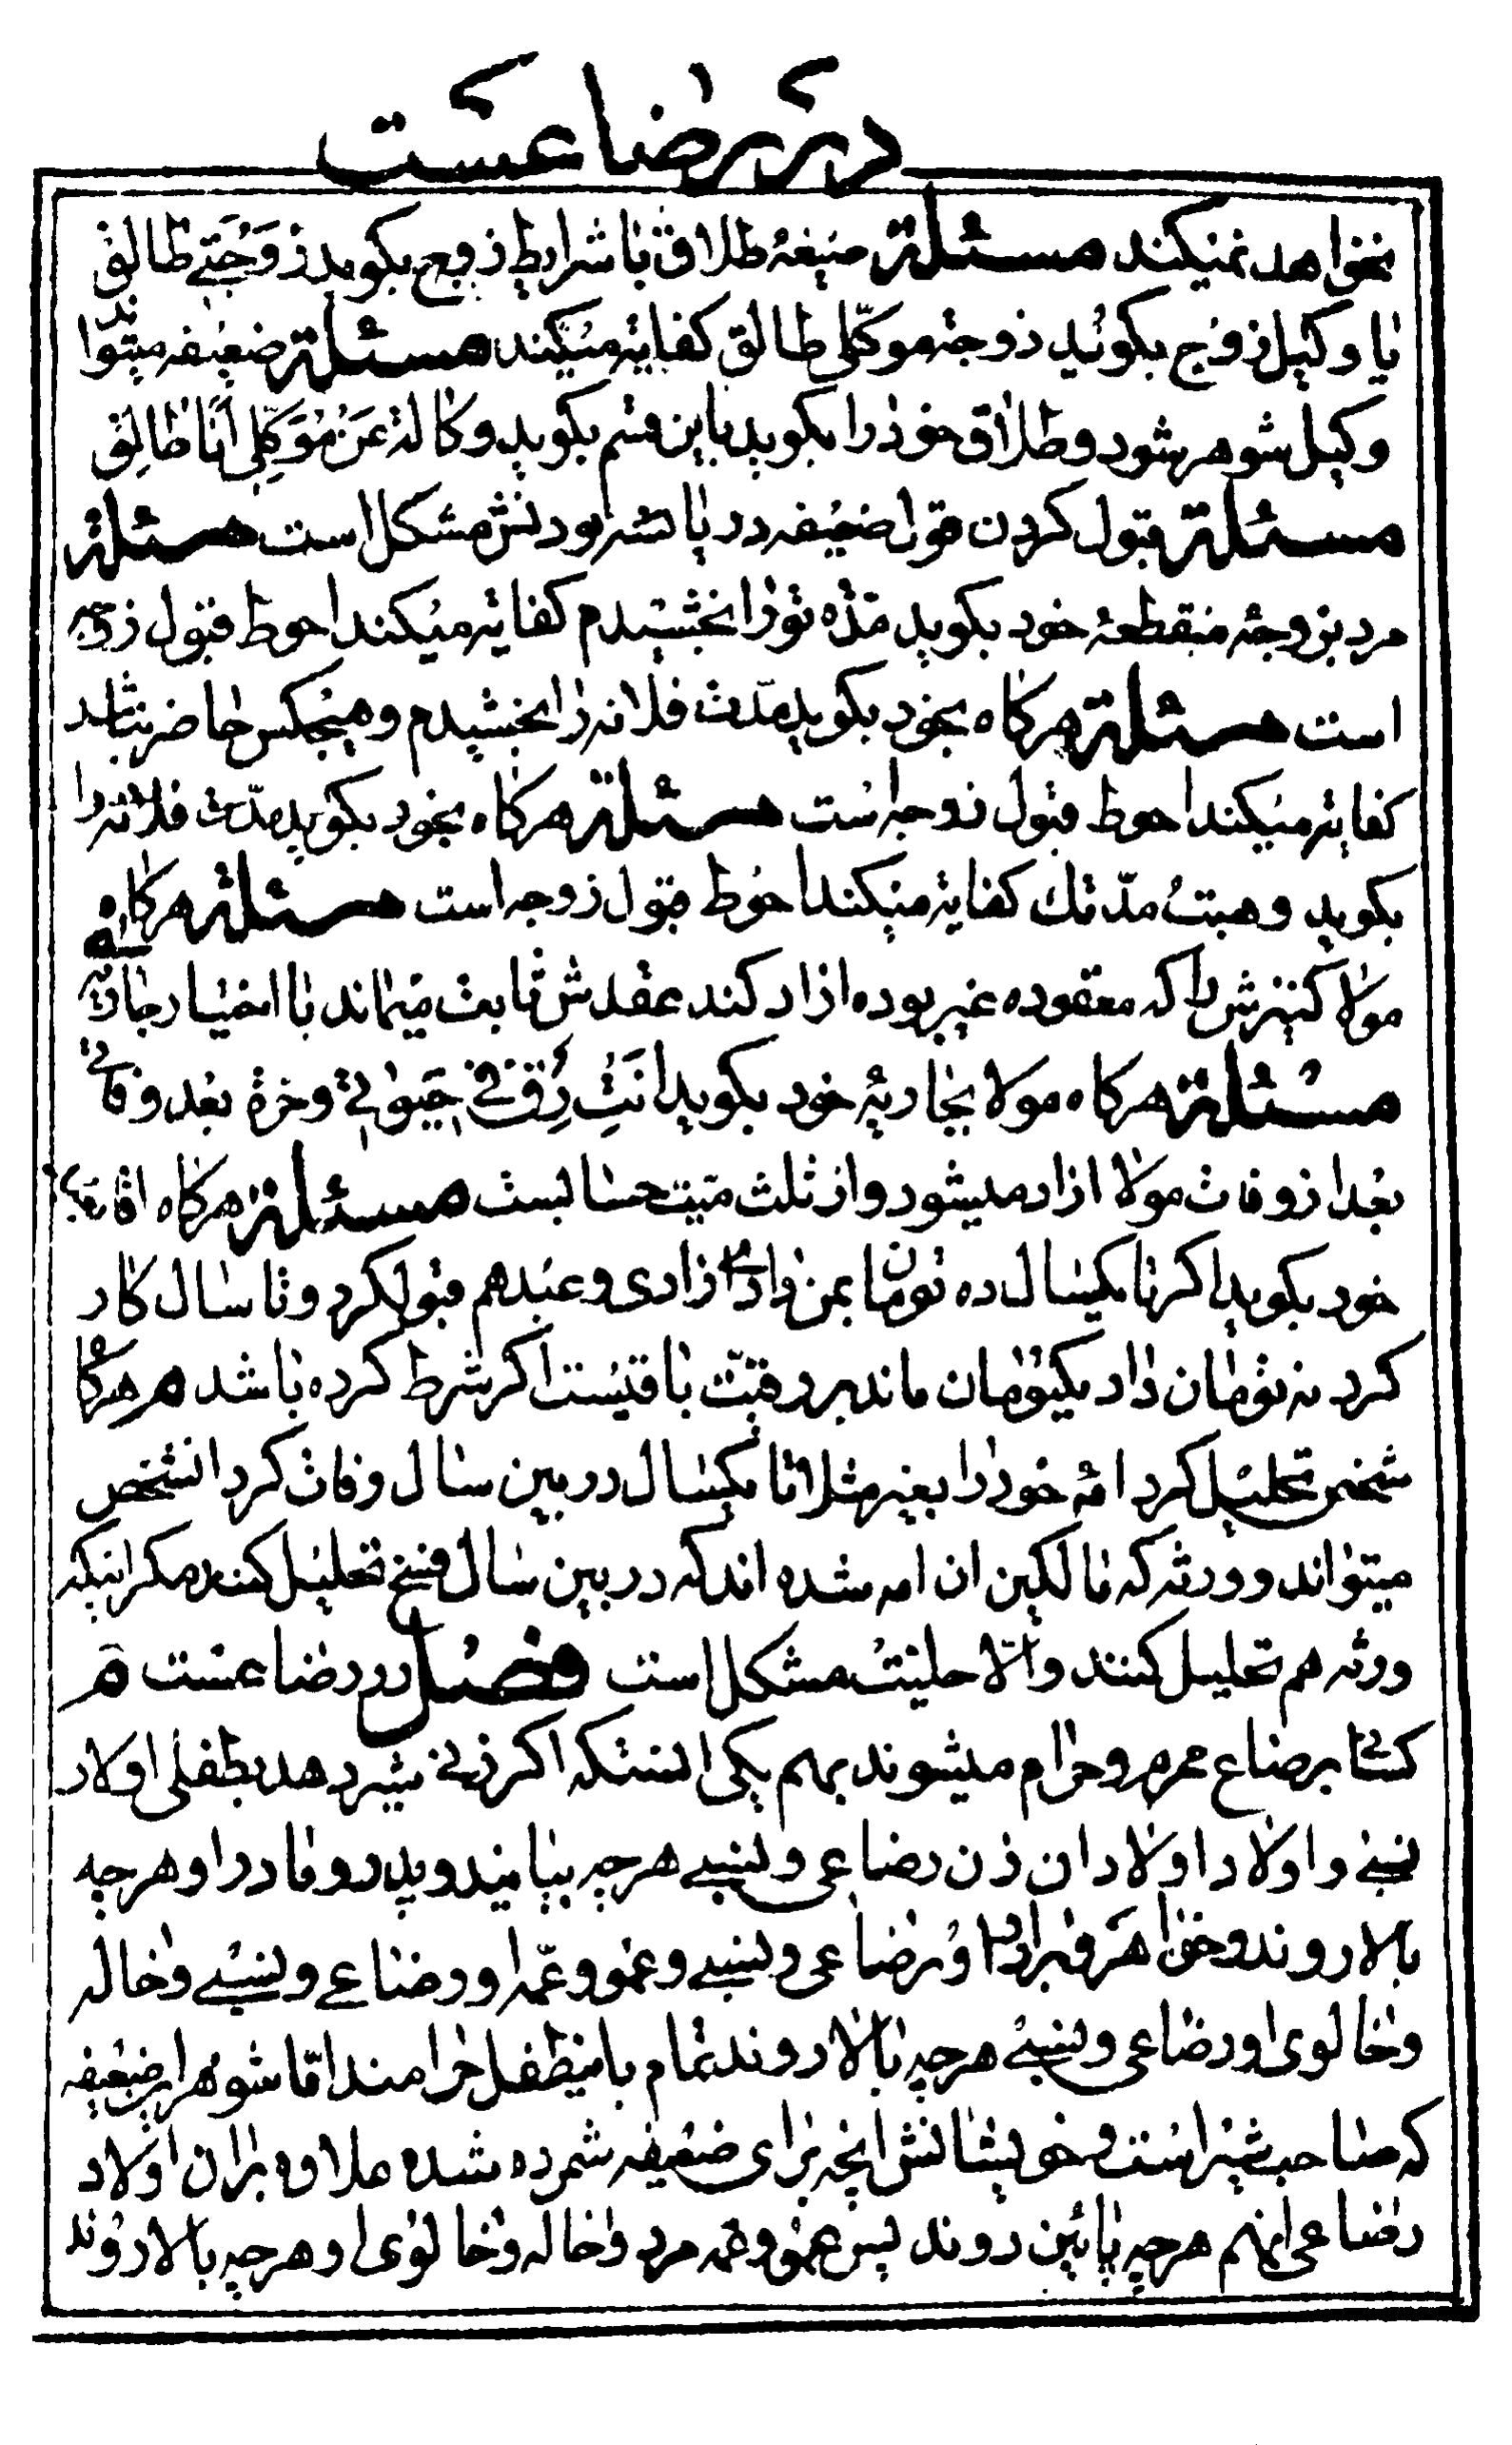 در رضاعست
نخواهد نمیکند مسئلة صیغهٔ طلاق با شرایط زوج بکوید زَوْجَتی طالق
یا وکیل زوج بکوید زوجة موکّلی طالق کفایة میکند مسئلة ضعیفه میتواند
وکیل شوهر شود و طلاق خود را بکوید باین قسم بکوید وکالة عَن مُوَکِّلی اَنَا طالِق
مسئلة قبول کردن قول ضعیفه در یائسه بودنش مشکل است مسئلة
مرد بزوجهٔ منقطعهٔ خود بکوید مدّه تو را بخشیدم کفایة میکند احوط قبول زوجه
است مسئلة هرکاه بخود بکوید مدّت فلانه را بخشیدم و هیچکس حاضر نباشد
کفایة میکند احوط قبول زوجه است مسئلة هرکاه بخود بکوید مدّت فلانه را
بکوید وهبتُ مدّتك کفایة میکند احوط قبول زوجه است مسئلة هرکاه
مولا کنیزش را که معقوده غیر بوده ازاد کند عقدش ثابت میماند با اختیار جاریه
مسئلة هرکاه مولا بجاریهٔ خود بکوید انتِ رِقّ فی حَیوٰتی و حرة بعد وفاتی
بعد از وفات مولا ازاد میشود و از ثلث میت حسابست مسئلة هرکاه اقا بعبد
خود بکوید اکر تا یکسال ده تومان بمن دادی ازادی و عبد هم قبول کرد و تا سال کار
کرد نه تومان داد یکتومان ماند بر رقیّت باقیست اکر شرط کرده باشد م هرکاه
شخصی تحلیل کرد امهٔ خود را بغیر مثلا تا یکسال در بین سال وفات کرد انشخص
میتواند و ورثه که مالکین ان امه شده اند که در بین سال فسخ تحلیل کنند مکر اینکه
ورثه هم تحلیل کنند والّا حلیّت مشکل است فصل در رضاعست م
کسانی برضاع محرم و حرام میشوند بهم یکی انستکه اکر زنی شیر دهد بطفلی اولاد
نسبی و اولاد اولاد ان زن رضاعی و نسبی هرچه بیایند و پدر و مادر او هرچه
بالا روند و خواهر و برادر او رضاعی و نسبی و عمو و عمّه او رضاعی و نسبی و خاله
و خالوی او رضاعی و نسبی هرچه بالا روند تمام باینطفل حرامند امّا شوهر این ضعیفه
که صاحب شیر است و خویشانش انچه برای ضعیفه شمرده شده علاوه بران اولاد
رضاعی اینهم هرچه پائین روند پس عمو و عمه مرد و خاله و خالوی او هرچه بالا روند